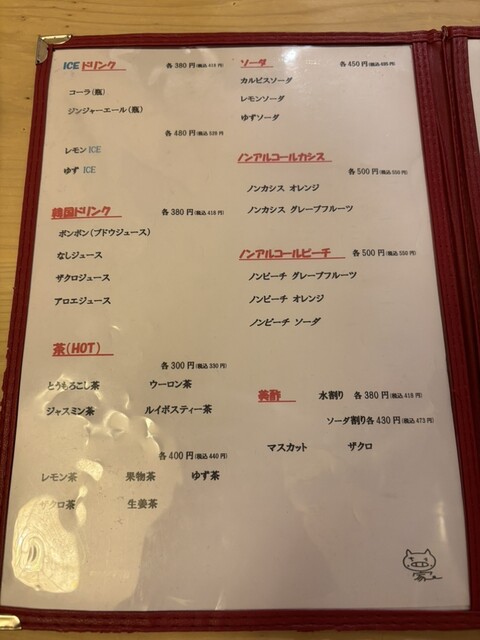 ICE ドリンク 各 380 円(税込 418 円)
コーラ(瓶)
ジンジャーエール(瓶)
各 480 円(税込 528 円
レモン ICE
ゆず ICE
韓国ドリンク 各 380 円(税込 418 円)
ポンポン(ブドウジュース)
なしジュース
ザクロジュース
アロエジュース
茶(HOT)
各 300 円(税込 330 円)
とうもろこし茶 ウーロン茶
ジャスミン茶 ルイボスティー茶
各 400 円(税込 440 円)
レモン茶 果物茶 ゆず茶
ザクロ茶 生姜茶
ソーダ 各 450 円(税込 495 円)
カルピスソーダ
レモンソーダ
ゆずソーダ
ノンアルコールカシス
各 500 円(税込 550 円)
ノンカシス オレンジ
ノンカシス グレープフルーツ
ノンアルコールピーチ 各 500 円(税込 550 円)
ノンピーチ グレープフルーツ
ノンピーチ オレンジ
ノンピーチ ソーダ
美酢 水割り 各 380 円(税込 418 円)
ソーダ割り各 430 円(税込 473 円)
マスカット ザクロ